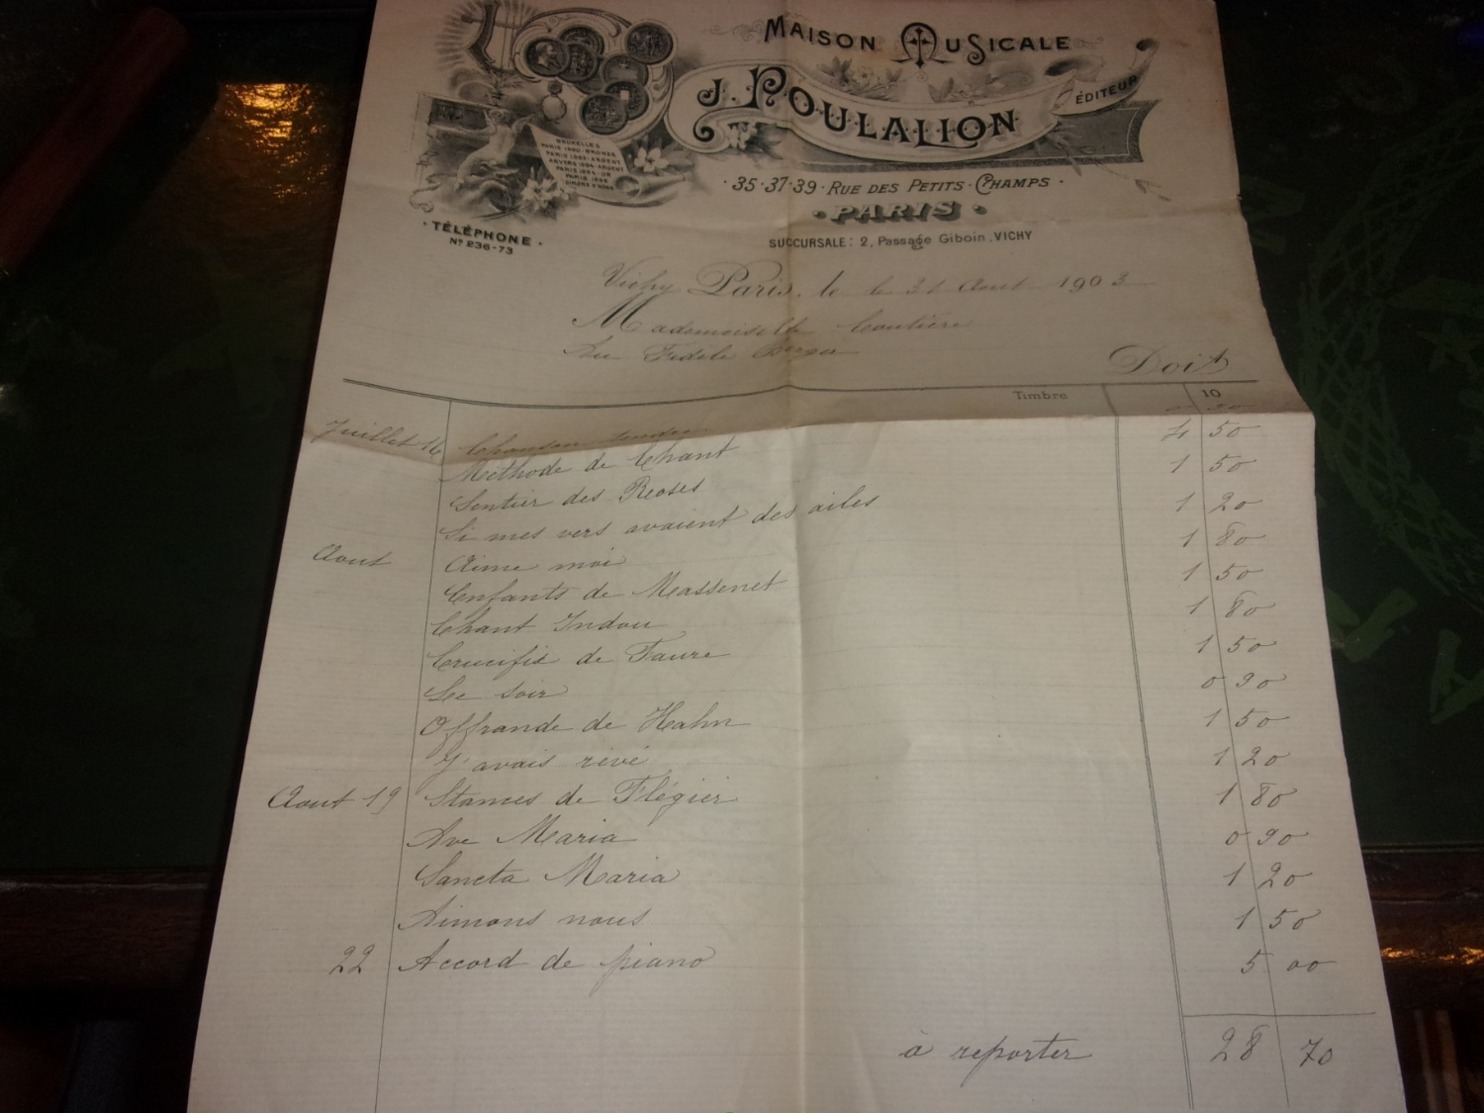 MAISON MUSICALE
J. POULALION
ÉDITEUR
BRUXELLES
PARIS 1880 · BRONZE
PARIS 1883 · ARGENT
ANVERS 1884 · ARGENT
35·37·39·RUE DES PETITS·CHAMPS
PARIS
TÉLÉPHONE
Nº 236-73
SUCCURSALE: 2, Passage Giboin. VICHY
Vichy Paris, le le 31 Aout 1903
Mademoiselle Coutière
Au Fidèle Berger
Doit
Timbre 10
Juillet 16 Chanson 0 90
Méthode de Chant 4 50
Sentier des Roses 1 50
Si mes vers avaient des ailes 1 20
Aout Aime moi 1 80
Enfants de Massenet 1 50
Chant Indou 1 80
Crucifix de Faure 1 50
Le Soir 0 90
Offrande de Hahn 1 50
J'avais rêvé 1 20
Aout 19 Stances de Flégier 1 80
Ave Maria 0 90
Sancta Maria 1 20
Aimons nous 1 50
22 Accord de piano 5 00
à reporter 28 70